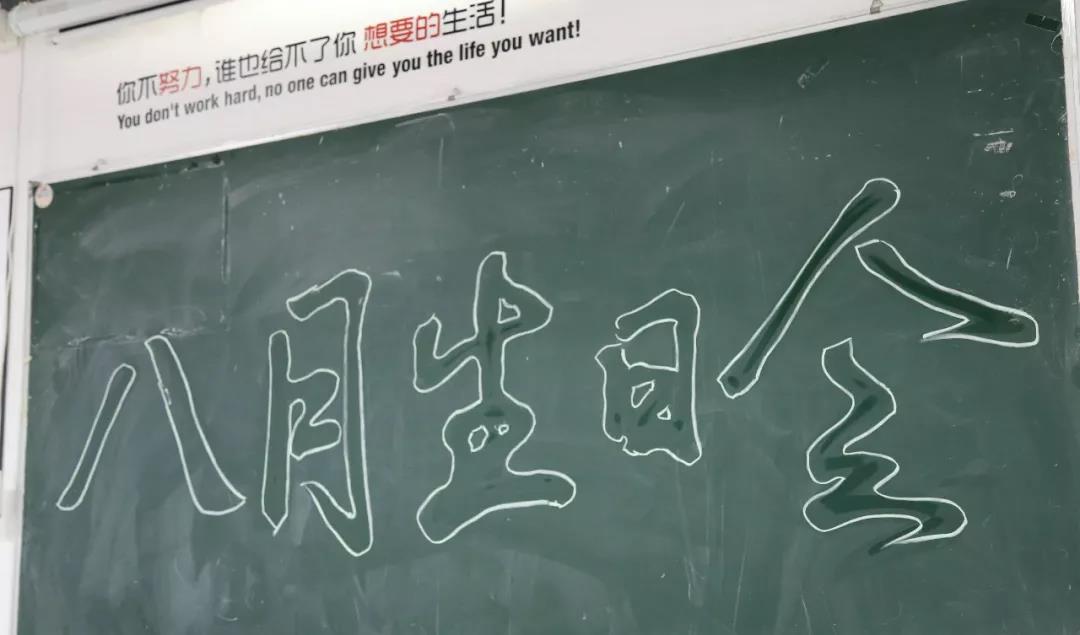 你不努力,谁也给不了你 想要的生活!
You don't work hard, no one can give you the life you want!
八月生日全